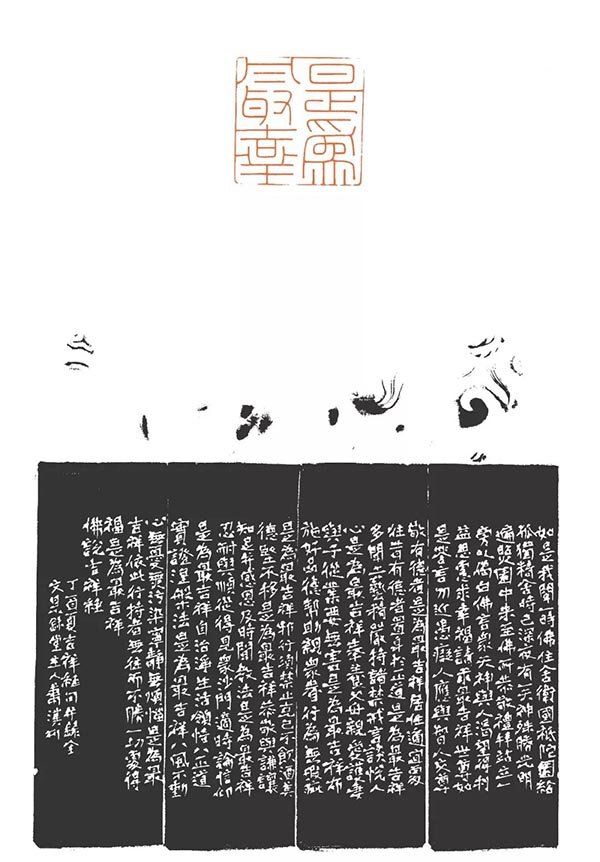 是為
如是我聞一時佛住舍衛國祇陀園給
孤獨精舍時已深夜有一天神殊勝光明
遍照園中來至佛所恭敬禮拜站立一
旁以偈白佛言眾天神與人渴望得利
益思慮求幸福請示最吉祥世尊如
是答言勿近愚癡人應與智人交尊
敬有德者是為最吉祥居住適宜處
往昔有德者置身於正道是為最吉祥
多聞工藝精嚴持諸禁戒言談悅人
心是為最吉祥奉養父母親愛護妻
與子從業要無害是為最吉祥布
施好品德幫助親眷行為無瑕疵
是為最吉祥邪行須禁止克己不飲酒美
德堅不移是為最吉祥恭敬與謙讓
知足並感恩及時聞教法是為最吉祥
忍耐與順從得見眾沙門適時論信仰
是為最吉祥自治淨生活領悟八正道
實證涅槃法是為最吉祥八風不動
心無憂無污染寧靜無煩惱是為最
吉祥依此行持者無往而不勝一切處得
福是為最吉祥
佛說吉祥經
丁酉夏吉祥
主人蕭